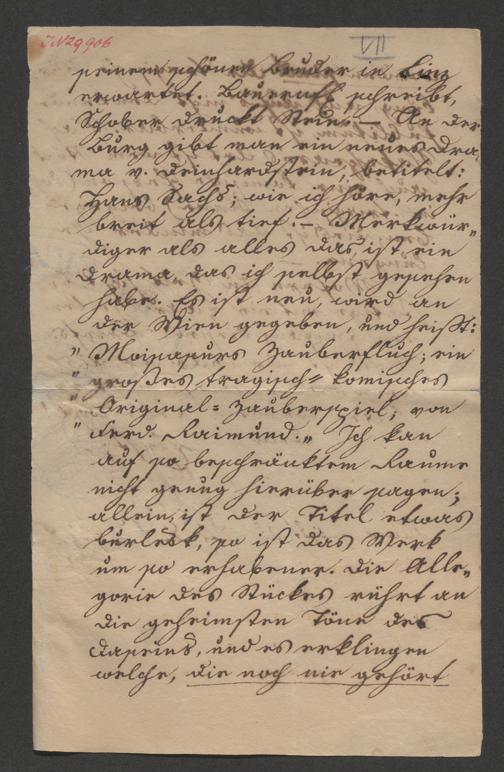 JN 29906
VII
seinem schönen Bruder in Linz
erwartet. Bauernf. schreibt,
Schober druckt Steine. — An der
Burg gibt man ein neues Dra-
ma v. Deinhardstein, betitelt:
Hans Sachs; wie ich höre, mehr
breit als tief. — Merkwür„
diger als alles das ist ein
Drama, das ich selbst gesehen
habe. Es ist neu, wird an
der Wien gegeben, und heißt:
„ Moisasurs Zauberfluch; ein
„ großes tragisch= komisches
„ Original= Zauberspiel, von
„ Ferd. Raimund.„ Ich kan
auf so beschränktem Raume
nicht genug hierüber sagen;
allein, ist der Titel etwas
burlesk, so ist das Werk
um so erhabener. Die Alle„
gorie des Stückes rührt an
die geheimsten Töne des
Daseins, und es erklingen
welche, die noch nie gehört